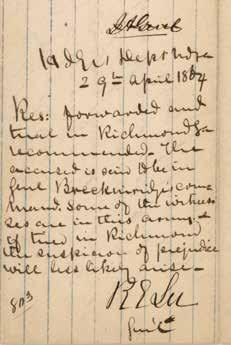 Hd Qrs Dept N Va
29th April 1864
Res: forwarded and
trial in Richmond
recommended. The
accused is said to be in
Genl Breckinridge's com
mand. Some of the witnes
ses are in this army. &
if tried in Richmond
the suspicion of prejudice
will less likely arise_
R E Lee
Genl